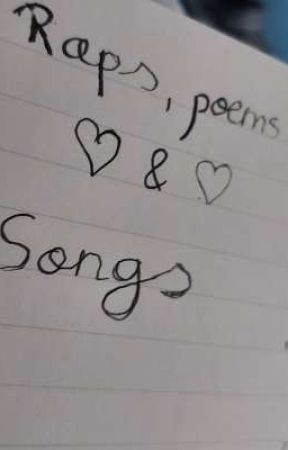 Raps, poems
♡ & ♡
Songs